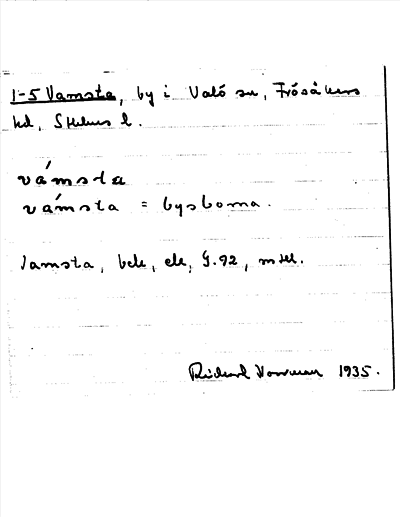 1-5 Vamsta, by i Valö sn, Frösåkers
hd, Sthlms l.
vámsta
vámsta = bysborna.
Vamsta, bek, ek, G.92, mtl.
Richard 1935.